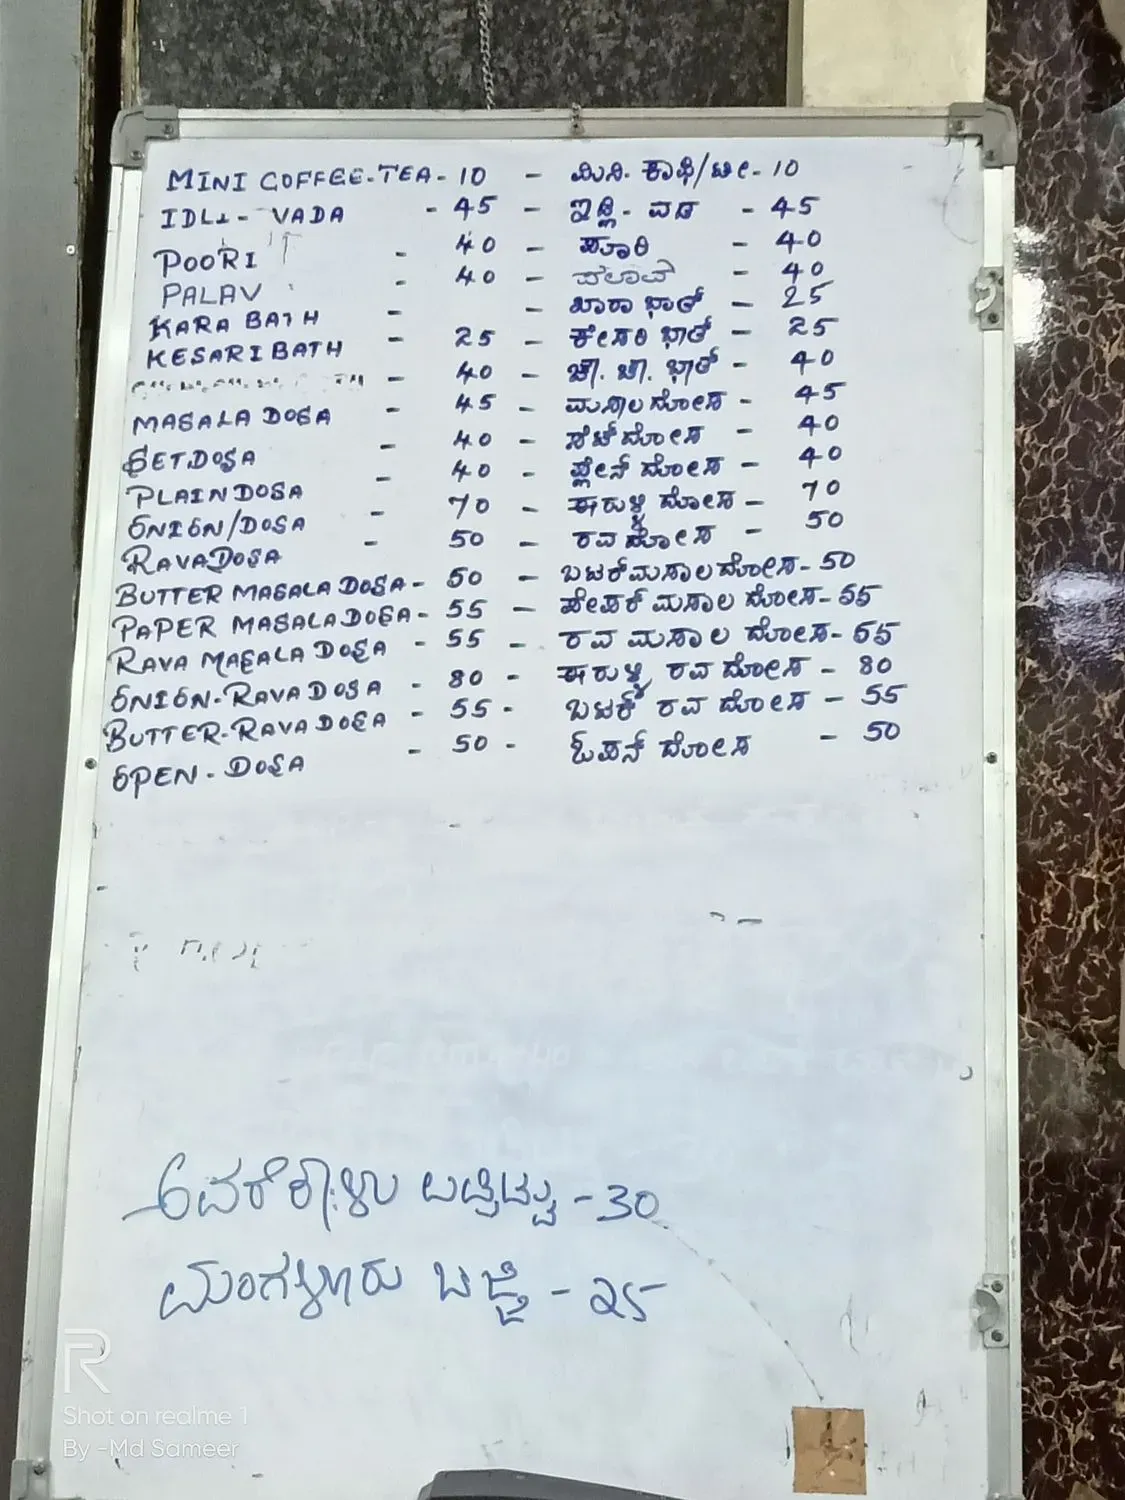 MINI COFFEE-TEA - 10 - ಮಿನಿ. ಕಾಫಿ/ಟೀ - 10
IDLI - VADA - 45 - ಇಡ್ಲಿ - ವಡ - 45
POORI - 40 - ಪೂರಿ - 40
PALAV - 40 - ಪಲಾವ್ - 40
KARA BATH - - ಖಾರಾ ಭಾತ್ - 25
KESARI BATH - 25 - ಕೇಸರಿ ಭಾತ್ - 25
- 40 - ಚೌ. ಚೌ. ಭಾತ್ - 40
MASALA DOSA - 45 - ಮಸಾಲ ದೋಸ - 45
SET DOSA - 40 - ಸೆಟ್ ದೋಸ - 40
PLAIN DOSA - 40 - ಪ್ಲೇನ್ ದೋಸ - 40
ONION/DOSA - 70 - ಈರುಳ್ಳಿ ದೋಸ - 70
RAVA DOSA - 50 - ರವ ದೋಸ - 50
BUTTER MASALA DOSA - 50 - ಬಟರ್ ಮಸಾಲ ದೋಸ - 50
PAPER MASALA DOSA - 55 - ಪೇಪರ್ ಮಸಾಲ ದೋಸ - 55
RAVA MASALA DOSA - 55 - ರವ ಮಸಾಲ ದೋಸ - 55
ONION-RAVA DOSA - 80 - ಈರುಳ್ಳಿ ರವ ದೋಸ - 80
BUTTER-RAVA DOSA - 55 - ಬಟರ್ ರವ ದೋಸ - 55
OPEN - DOSA - 50 - ಓಪನ್ ದೋಸ - 50
- 30
ಮಂಗಳೂರು ಬಜ್ಜಿ - 25
Shot on realme 1
By -Md Sameer